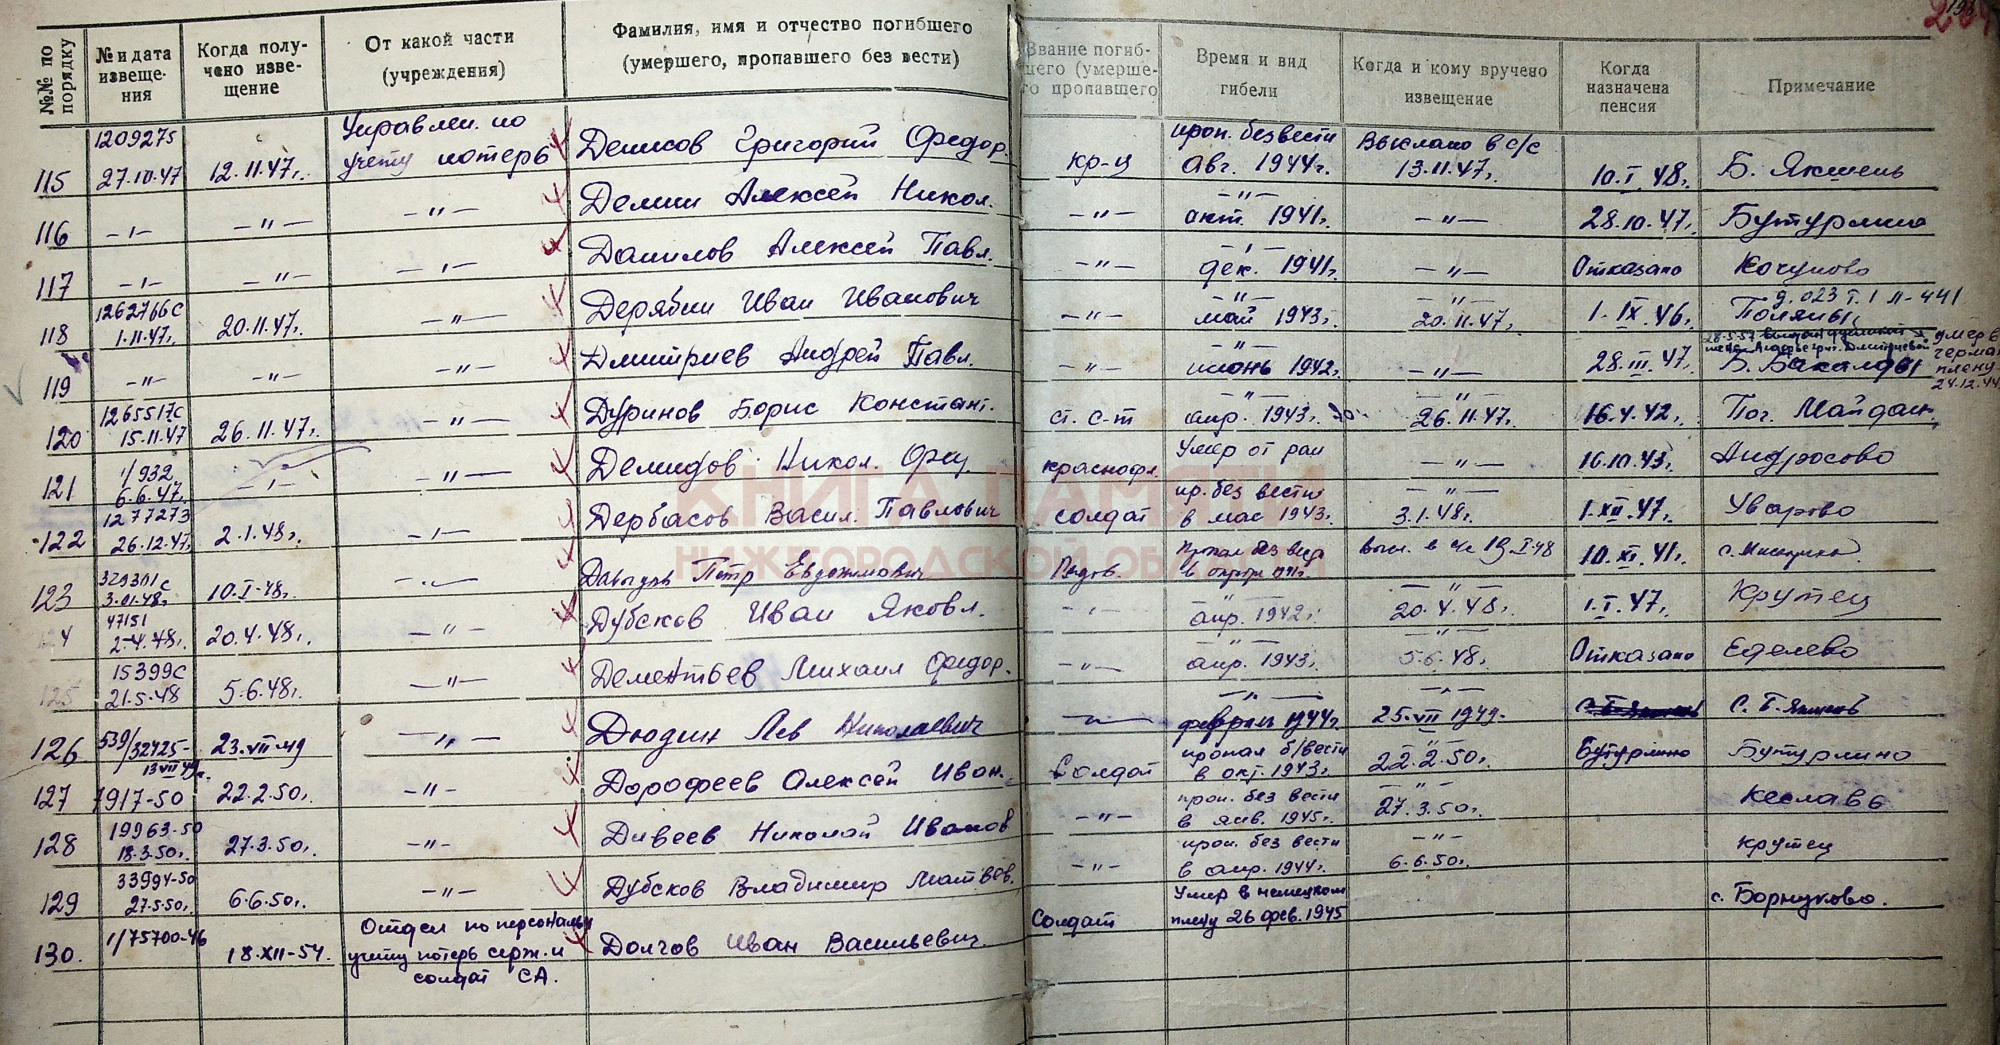 №№ по порядку | № и дата извещения | Когда получено извещение | От какой части (учреждения) | Фамилия, имя и отчество погибшего (умершего, пропавшего без вести) | Звание погибшего (умершего пропавшего | Время и вид гибели | Когда и кому вручено извещение | Когда назначена пенсия | Примечание
115 | 1209275 27.10.47 | 12.11.47г. | Управлен. по учету потерь | Денисов Григорий Федор. | кр-ц | проп. без вести авг. 1944г. | Выслано в с/с 13.11.47г. | 10.I.48г. | Б. Якшень
116 | -"- | -"- | -"- | Демин Алексей Никол. | -"- | -"- окт. 1941г. | -"- | 28.10.47г. | Бутурлино
117 | -"- | -"- | -"- | Данилов Алексей Павл. | -"- | -"- дек. 1941г. | -"- | Отказано | Кочуново
118 | 1262766с 1.11.47г. | 20.11.47г. | -"- | Дерябин Иван Иванович | -"- | -"- май 1943г. | -"- 20.11.47г. | 1.IX.46г. | Поляны д. 023 т. 1 л-441
119 | -"- | -"- | -"- | Дмитриев Андрей Павл. | -"- | -"- июнь 1942г. | -"- | 28.III.47г. | 28-5-57 Б. Бакалды умер в плену 24.12.44
120 | 1265517с 15.11.47 | 26.11.47г. | -"- | Дуринов Борис Констант. | ст. с-т | -"- апр. 1943г. | -"- 26.11.47г. | 16.4.42г. | Поч. Майдан
121 | 1/932 6.6.47г. | -"- | -"- | Демидов Никол. | краснофл. | Умер от ран | -"- | 16.10.43г. | Андросово
122 | 1277273 26.12.47г. | 2.1.48г. | -"- | Дербасов Васил. Павлович | солдат | пр. без вести в мае 1943г. | -"- 3.1.48г. | 1.XII.47г. | Уварово
123 | 329301с 3.01.48г. | 10.I.48г. | -"- | Давыдов Петр Евдокимович | Рядов. | Пропал без вести | 19.I.48 | 10.XI.41г.
124 | 47151 2.4.48г. | 20.4.48г. | -"- | Дубсков Иван Яковл. | -"- | апр. 1942г. | -"- 20.4.48г. | 1.I.47г. | Крутец
125 | 15399с 21.5.48 | 5.6.48г. | -"- | Дементьев Михаил Федор. | -"- | -"- апр. 1943г. | -"- 5.6.48г. | Отказано | Еделево
126 | 539/32425- 13.VII.49г. | 23.VII.49 | -"- | Дюдин Лев Николаевич | -"- | -"- феврал 1944г. | -"- 25.VII 1949г. | с. Б-Якшень | С. Б-Якшень
127 | 7917-50 | 22.2.50г. | -"- | Дорофеев Алексей Иван. | Солдат | пропал б/вести в окт. 1943г. | -"- 22.2.50г. | Бутурлино | Бутурлино
128 | 19963-50 18.3.50г. | 27.3.50г. | -"- | Дивеев Николай Иванов | -"- | проп. без вести в янв. 1945г. | -"- 27.3.50г. | Кеславь
129 | 33994-50 27.5.50г. | 6.6.50г. | -"- | Дубсков Владимир Матвеев. | -"- | проп. без вести в апр. 1944г. | -"- 6.6.50г. | Крутец
130. | 1/75700-46 | 18.XII-54. | Отдел по персональн. учету потерь серж. и солдат СА. | Долгов Иван Васильевич. | Солдат | Умер в немецком плену 26 фев. 1945 | с. Борнуково.
КНИГА ПАМЯТИ
НИЖЕГОРОДСКОЙ ОБЛАСТИ